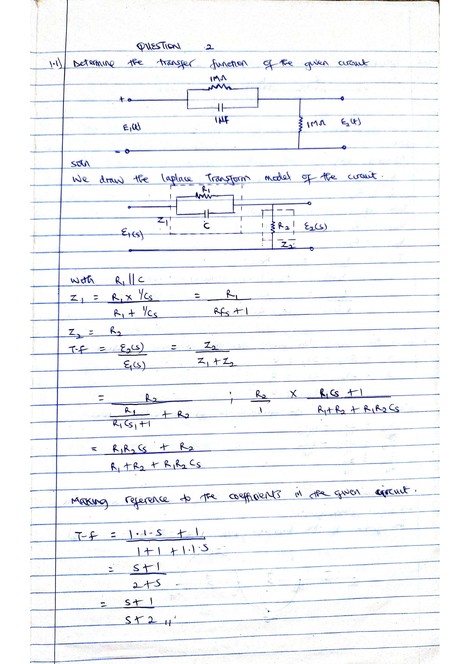 QUESTION 2
1.1) Determine the transfer function of the given circuit
1MΩ
+
1µF
E₁(t)
1MΩ E₂(t)
-
soln
We draw the laplace Transform model of the circuit.
R₁
Z₁
C
R₂ E₂(s)
E₁(s)
Z₂
with R₁ || C
Z₁ = R₁ × 1/Cs / R₁ + 1/Cs = R₁ / R₁Cs + 1
Z₂ = R₂
T-f = E₂(s) / E₁(s) = Z₂ / Z₁ + Z₂
= R₂ / R₁ / R₁Cs₁ + 1 + R₂ ; R₂ / 1 × R₁Cs + 1 / R₁ + R₂ + R₁R₂Cs
= R₁R₂Cs + R₂ / R₁ + R₂ + R₁R₂Cs
Making reference to the coefficients in the given circuit.
T-f = 1·1·s + 1 / 1 + 1 + 1·1·s
= s + 1 / 2 + s
= s + 1 / s + 2 //